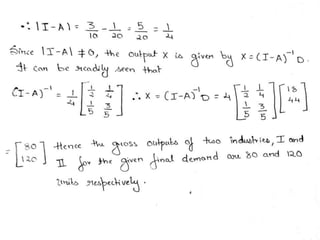 ∴ |I-A| = 3/10 - 1/20 = 5/20 = 1/4
Since |I-A| ≠ 0, the output X is given by X = (I-A)⁻¹ D.
It can be readily seen that
(I-A)⁻¹ = 1/4 [1/2 1/4 1/5 3/5] ∴ X = (I-A)⁻¹ D = 4 [1/2 1/4 1/5 3/5] [18 44]
= [80 120] Hence the gross outputs of two industries, I and
II for the given final demand are 80 and 120
units respectively.